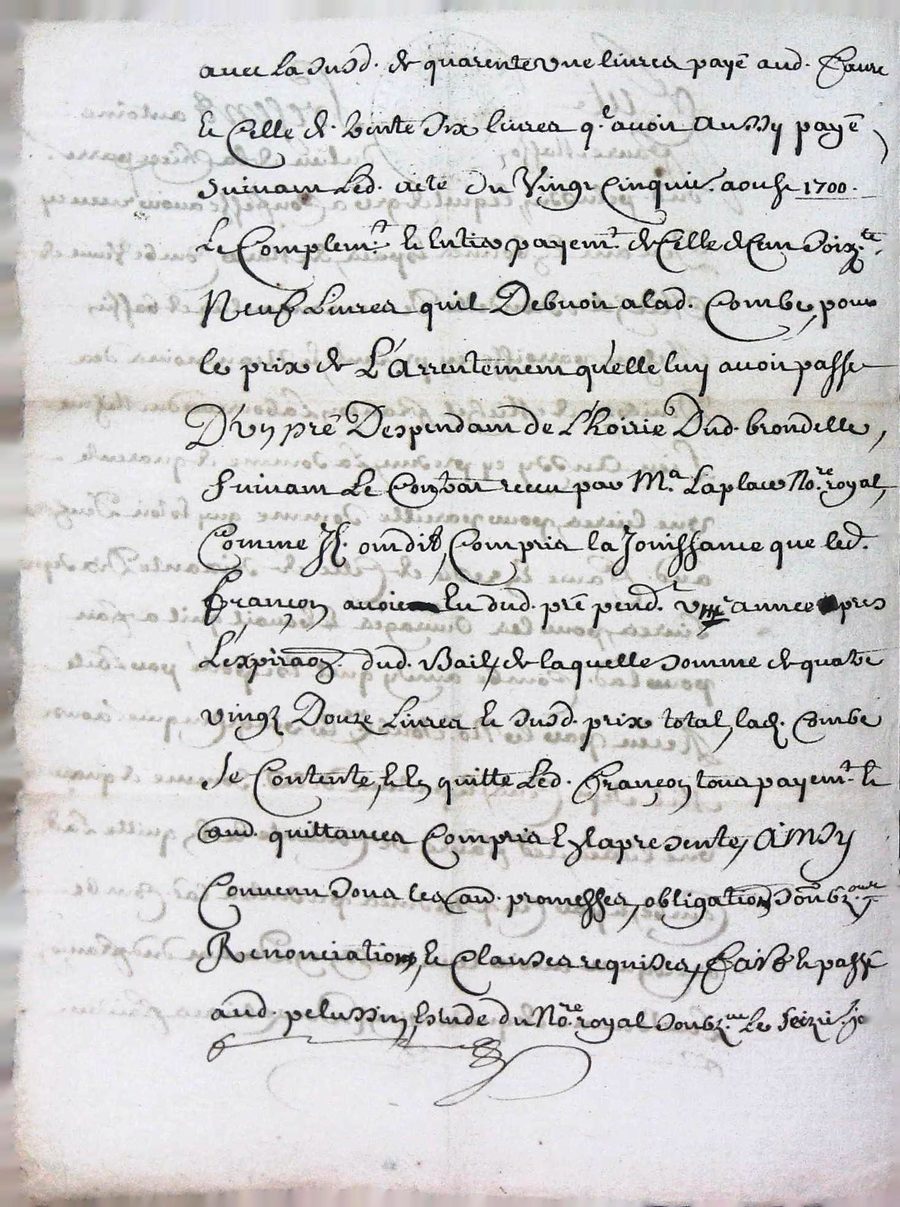 avec La susd. de quarente vne livres payé aud. Faure
et Celle de vinte six livres q.e avoit aussy payé
suivant Led. acte du Vingt Cinquie. aoust 1700.
Le Complem.t et entier payem.t de Celle de Cent Soix.te
Neuf Livres quil Debvoit a lad. Combe, pour
le prix de L'Arrentement qu'elle luy avoit passé
D'vn pré Despendant de l'hoirie Dud. brondelle,
suivant Le Contrat receu par M.e Laplace No.re royal,
Comme Il ont dit, Compris la Jouissance que led.
françon avoit eu dud. pré pend.t vne annee apres
L'expiraon. dud. Bail, de laquelle somme de quatre
vingt Douze Livres et susd. prix total, lad. Combe
se Contente, et en quitte Led. françon tous payem.t et
aud. quittances Compris en la presente, Ainsy
Convenu sous les aud. promesses, obligation,
Renonciation, et Clauses requises, faict et passé
aud. pelussin, Estude du No.re royal soubz.ne Le seizie.